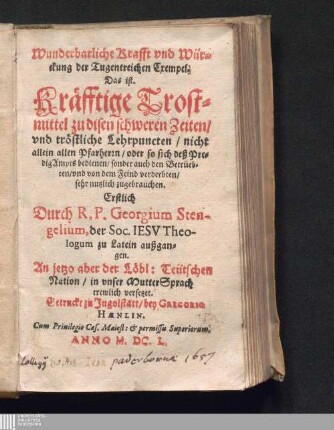 Wunderbarliche Krafft vnd Wür-
ckung der Tugentreichen Exempel;
Das ist.
Kräfftige Trost-
mittel zu disen schweren Zeiten/
vnd tröstliche Lehrpuncten / nicht
allein allen Pfarherrn / oder so sich deß Pre-
dig Ampts bedienen / sonder auch den Betrüeb-
ten/vnd von dem Feind verderbten/
sehr nutzlich zugebrauchen.
Erstlich
Durch R. P. Georgium Sten-
gelium, der Soc. IESV Theo-
logum zu Latein außgan-
gen.
An jetzo aber der Löbl: Teütschen
Nation / in vnser Mutter Sprach
trewlich versetzt.
Getruckt zu Ingolstatt / bey GREGORIO
HÆNLIN.
Cum Privilegio Cæs. Maiest: & permissu Superiorum.
ANNO M. DC. L.
Collegij Soc. Iesu paderbornæ 1657